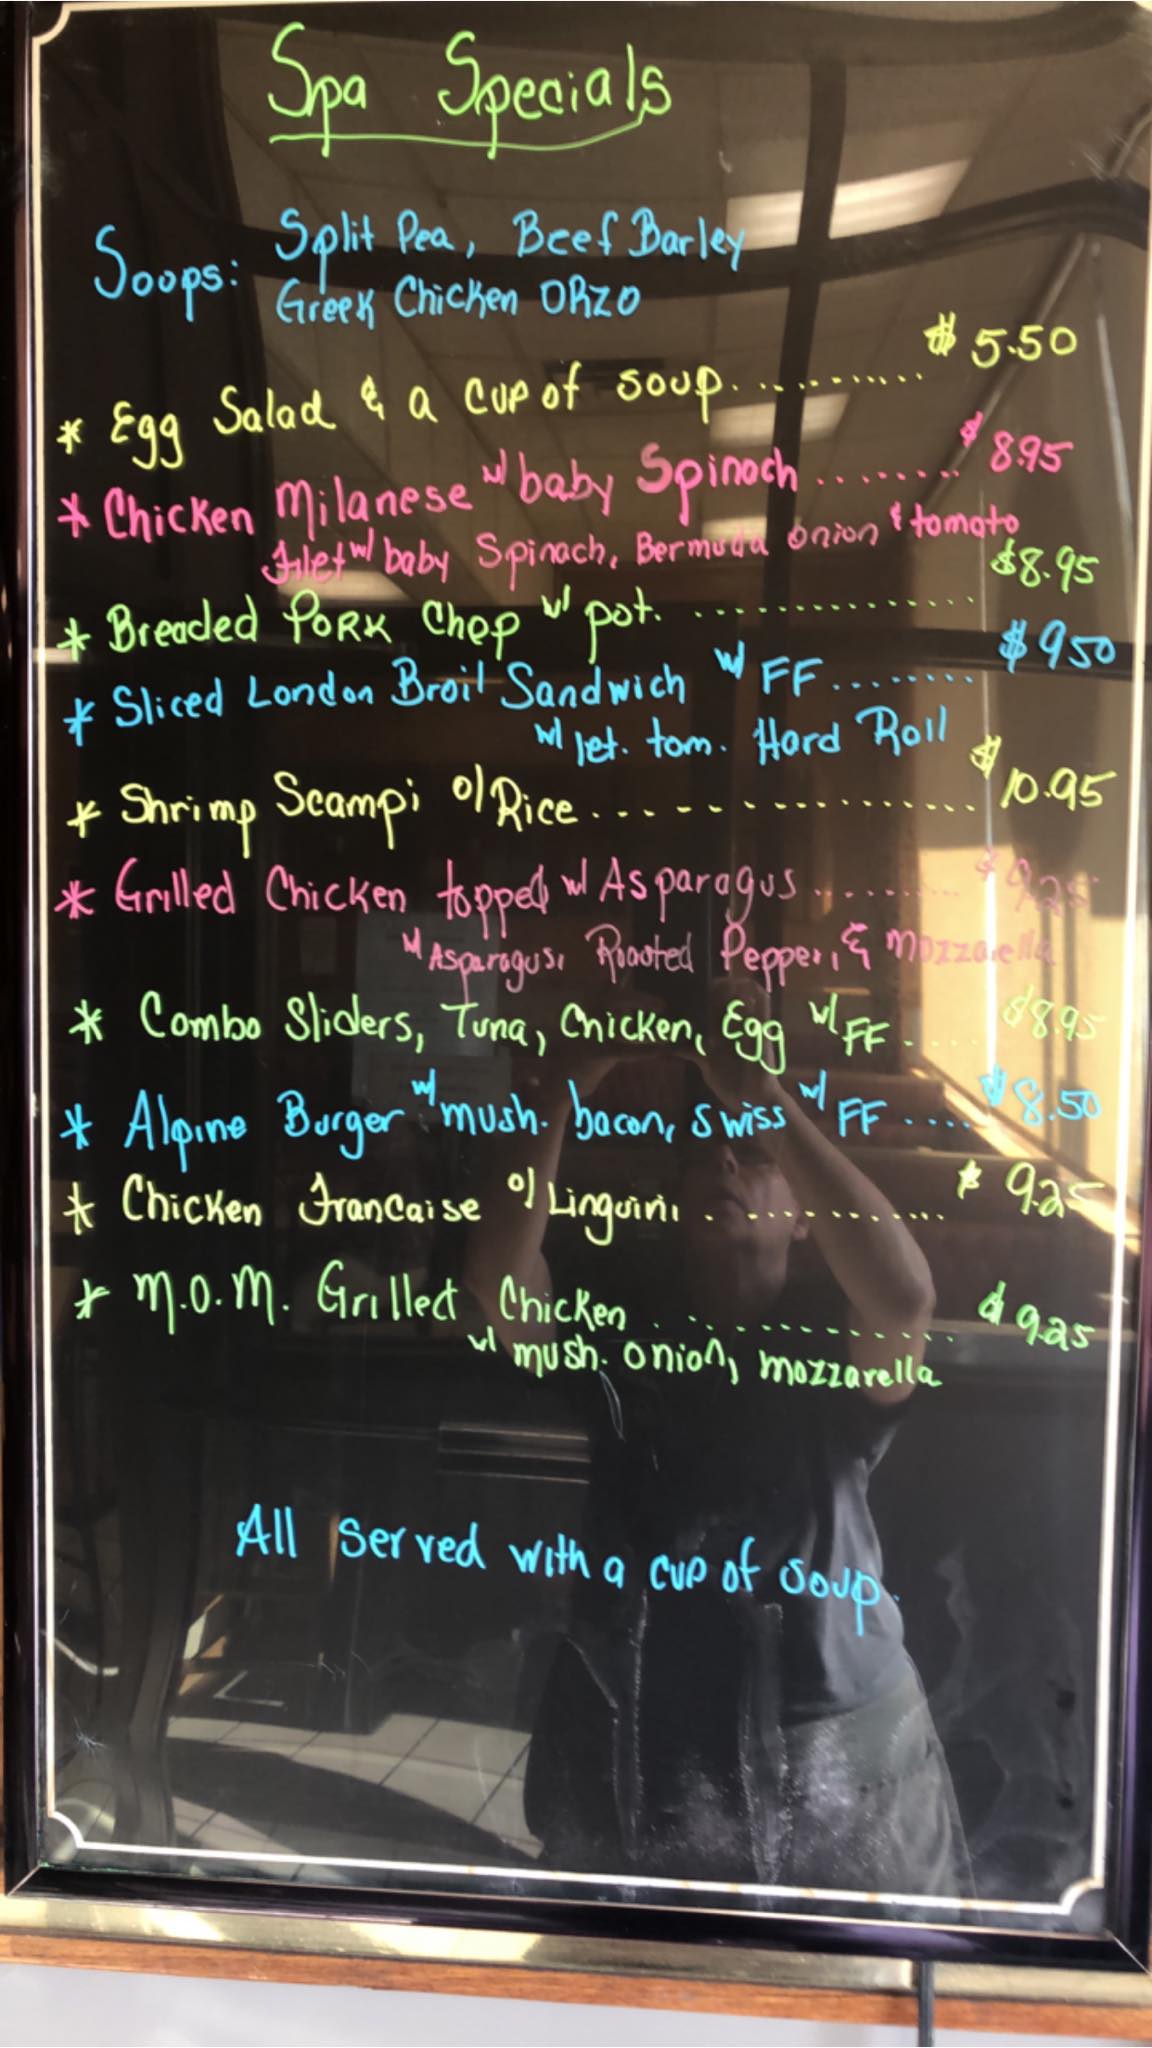 Spa Specials
Soups: Split Pea, Beef Barley
Greek Chicken ORZO
* Egg Salad & a cup of soup............ $5.50
* Chicken Milanese w/ baby Spinach ........ $8.95
Filet w/ baby Spinach, Bermuda onion & tomato
* Breaded PORK Chop w/ pot. ............... $8.95
* Sliced London Broil Sandwich w/ FF......... $9.50
w/ let. tom. Hard Roll
* Shrimp Scampi o/ Rice................. $10.95
* Grilled Chicken topped w/ Asparagus .......... $9.25
w/ Asparagus, Roasted Pepper, & mozzarella
* Combo Sliders, Tuna, Chicken, Egg w/ FF ..... $8.95
* Alpine Burger w/ mush. bacon, swiss w/ FF ..... $8.50
* Chicken Francaise o/ Linguini ............ $9.25
* M.O.M. Grilled Chicken ............. $9.25
w/ mush. onion, mozzarella
All served with a cup of soup.